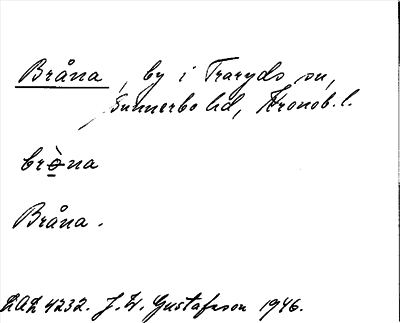 Bråna, by i Traryds sn,
Sunnerbo hd, Kronob. l.
brò̱na
Bråna.
LAL 4232. J. W. Gustafsson 1946.